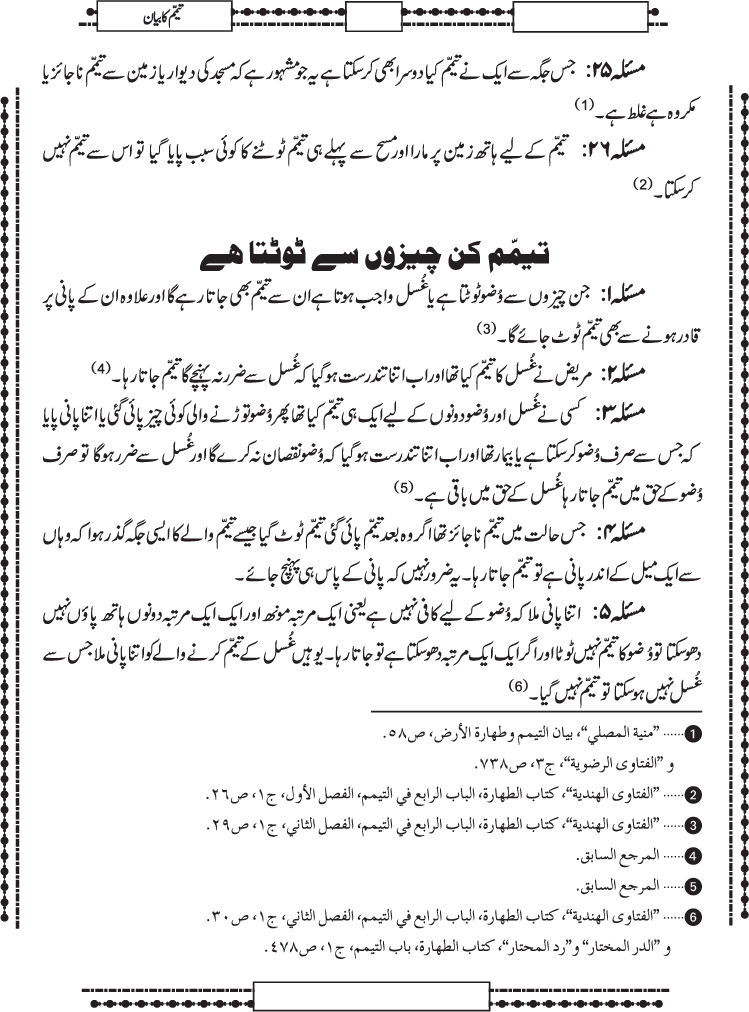 تیمّم کا بیان
مسئلہ ۲۵: جس جگہ سے ایک نے تیمّم کیا دوسرا بھی کر سکتا ہے یہ جو مشہور ہے کہ مسجد کی دیوار یا زمین سے تیمّم ناجائز یا
مکروہ ہے غلط ہے۔ (1)
مسئلہ ۲۶: تیمّم کے لیے ہاتھ زمین پر مارا اور مسح سے پہلے ہی تیمّم ٹوٹنے کا کوئی سبب پایا گیا تو اس سے تیمّم نہیں
کر سکتا۔ (2)
تیمّم کن چیزوں سے ٹوٹتا ھے
مسئلہ ۱: جن چیزوں سے وُضو ٹوٹتا ہے یا غُسل واجب ہوتا ہے ان سے تیمّم بھی جاتا رہے گا اور علاوہ ان کے پانی پر
قادر ہونے سے بھی تیمّم ٹوٹ جائے گا۔ (3)
مسئلہ ۲: مریض نے غُسل کا تیمّم کیا تھا اور اب اتنا تندرست ہوگیا کہ غُسل سے ضرر نہ پہنچے گا تیمّم جاتا رہا۔ (4)
مسئلہ ۳: کسی نے غُسل اور وُضو دونوں کے لیے ایک ہی تیمّم کیا تھا پھر وُضو توڑنے والی کوئی چیز پائی گئی یا اتنا پانی پایا
کہ جس سے صرف وُضو کر سکتا ہے یا بیمار تھا اور اب اتنا تندرست ہوگیا کہ وُضو نقصان نہ کرے گا اور غُسل سے ضرر ہوگا تو صرف
وُضو کے حق میں تیمّم جاتا رہا غُسل کے حق میں باقی ہے۔ (5)
مسئلہ ۴: جس حالت میں تیمّم ناجائز تھا اگر وہ بعد تیمّم پائی گئی تیمّم ٹوٹ گیا جیسے تیمّم والے کا ایسی جگہ گذر ہوا کہ وہاں
سے ایک میل کے اندر پانی ہے تو تیمّم جاتا رہا۔ یہ ضرور نہیں کہ پانی کے پاس ہی پہنچ جائے۔
مسئلہ ۵: اتنا پانی ملا کہ وُضو کے لیے کافی نہیں ہے یعنی ایک مرتبہ مونھ اور ایک ایک مرتبہ دونوں ہاتھ پاؤں نہیں
دھو سکتا تو وُضو کا تیمّم نہیں ٹوٹا اور اگر ایک ایک مرتبہ دھو سکتا ہے تو جاتا رہا۔ یوہیں غُسل کے تیمّم کرنے والے کو اتنا پانی ملا جس سے
غُسل نہیں ہو سکتا تو تیمّم نہیں گیا۔ (6)
1 ...... ”منية المصلي“، بيان التيمم وطهارة الأرض، ص۵۸.
و ”الفتاوى الرضوية“، ج۳، ص۷۳۸.
2 ...... ”الفتاوى الهندية“، كتاب الطهارة، الباب الرابع في التيمم، الفصل الأول، ج۱، ص۲٦.
3 ...... ”الفتاوى الهندية“، كتاب الطهارة، الباب الرابع في التيمم، الفصل الثاني، ج۱، ص۲۹.
4 ...... المرجع السابق.
5 ...... المرجع السابق.
6 ...... ”الفتاوى الهندية“، كتاب الطهارة، الباب الرابع في التيمم، الفصل الثاني، ج۱، ص۳۰.
و ”الدر المختار“ و”رد المحتار“، كتاب الطهارة، باب التيمم، ج۱، ص٤۷۸.